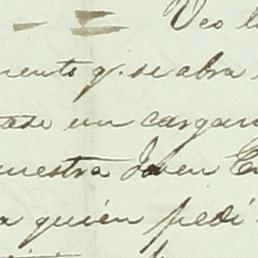 Veo l
mento q. se abra
tase un cargam
nuestra Joven C
a quién pedi